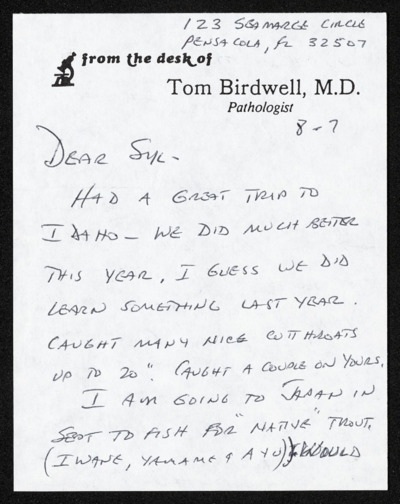 123 SEAMARGE CIRCLE
PENSACOLA, FL 32507
from the desk of
Tom Birdwell, M.D.
Pathologist
8-7
DEAR SYL-
HAD A GREAT TRIP TO
IDAHO - WE DID MUCH BETTER
THIS YEAR, I GUESS WE DID
LEARN SOMETHING LAST YEAR.
CAUGHT MANY NICE CUTTHROATS
UP TO 20". CAUGHT A COUPLE ON YOURS.
I AM GOING TO JAPAN IN
SEPT TO FISH FOR "NATIVE" TROUT.
(IWANE, YAMAME & AYU) I WOULD